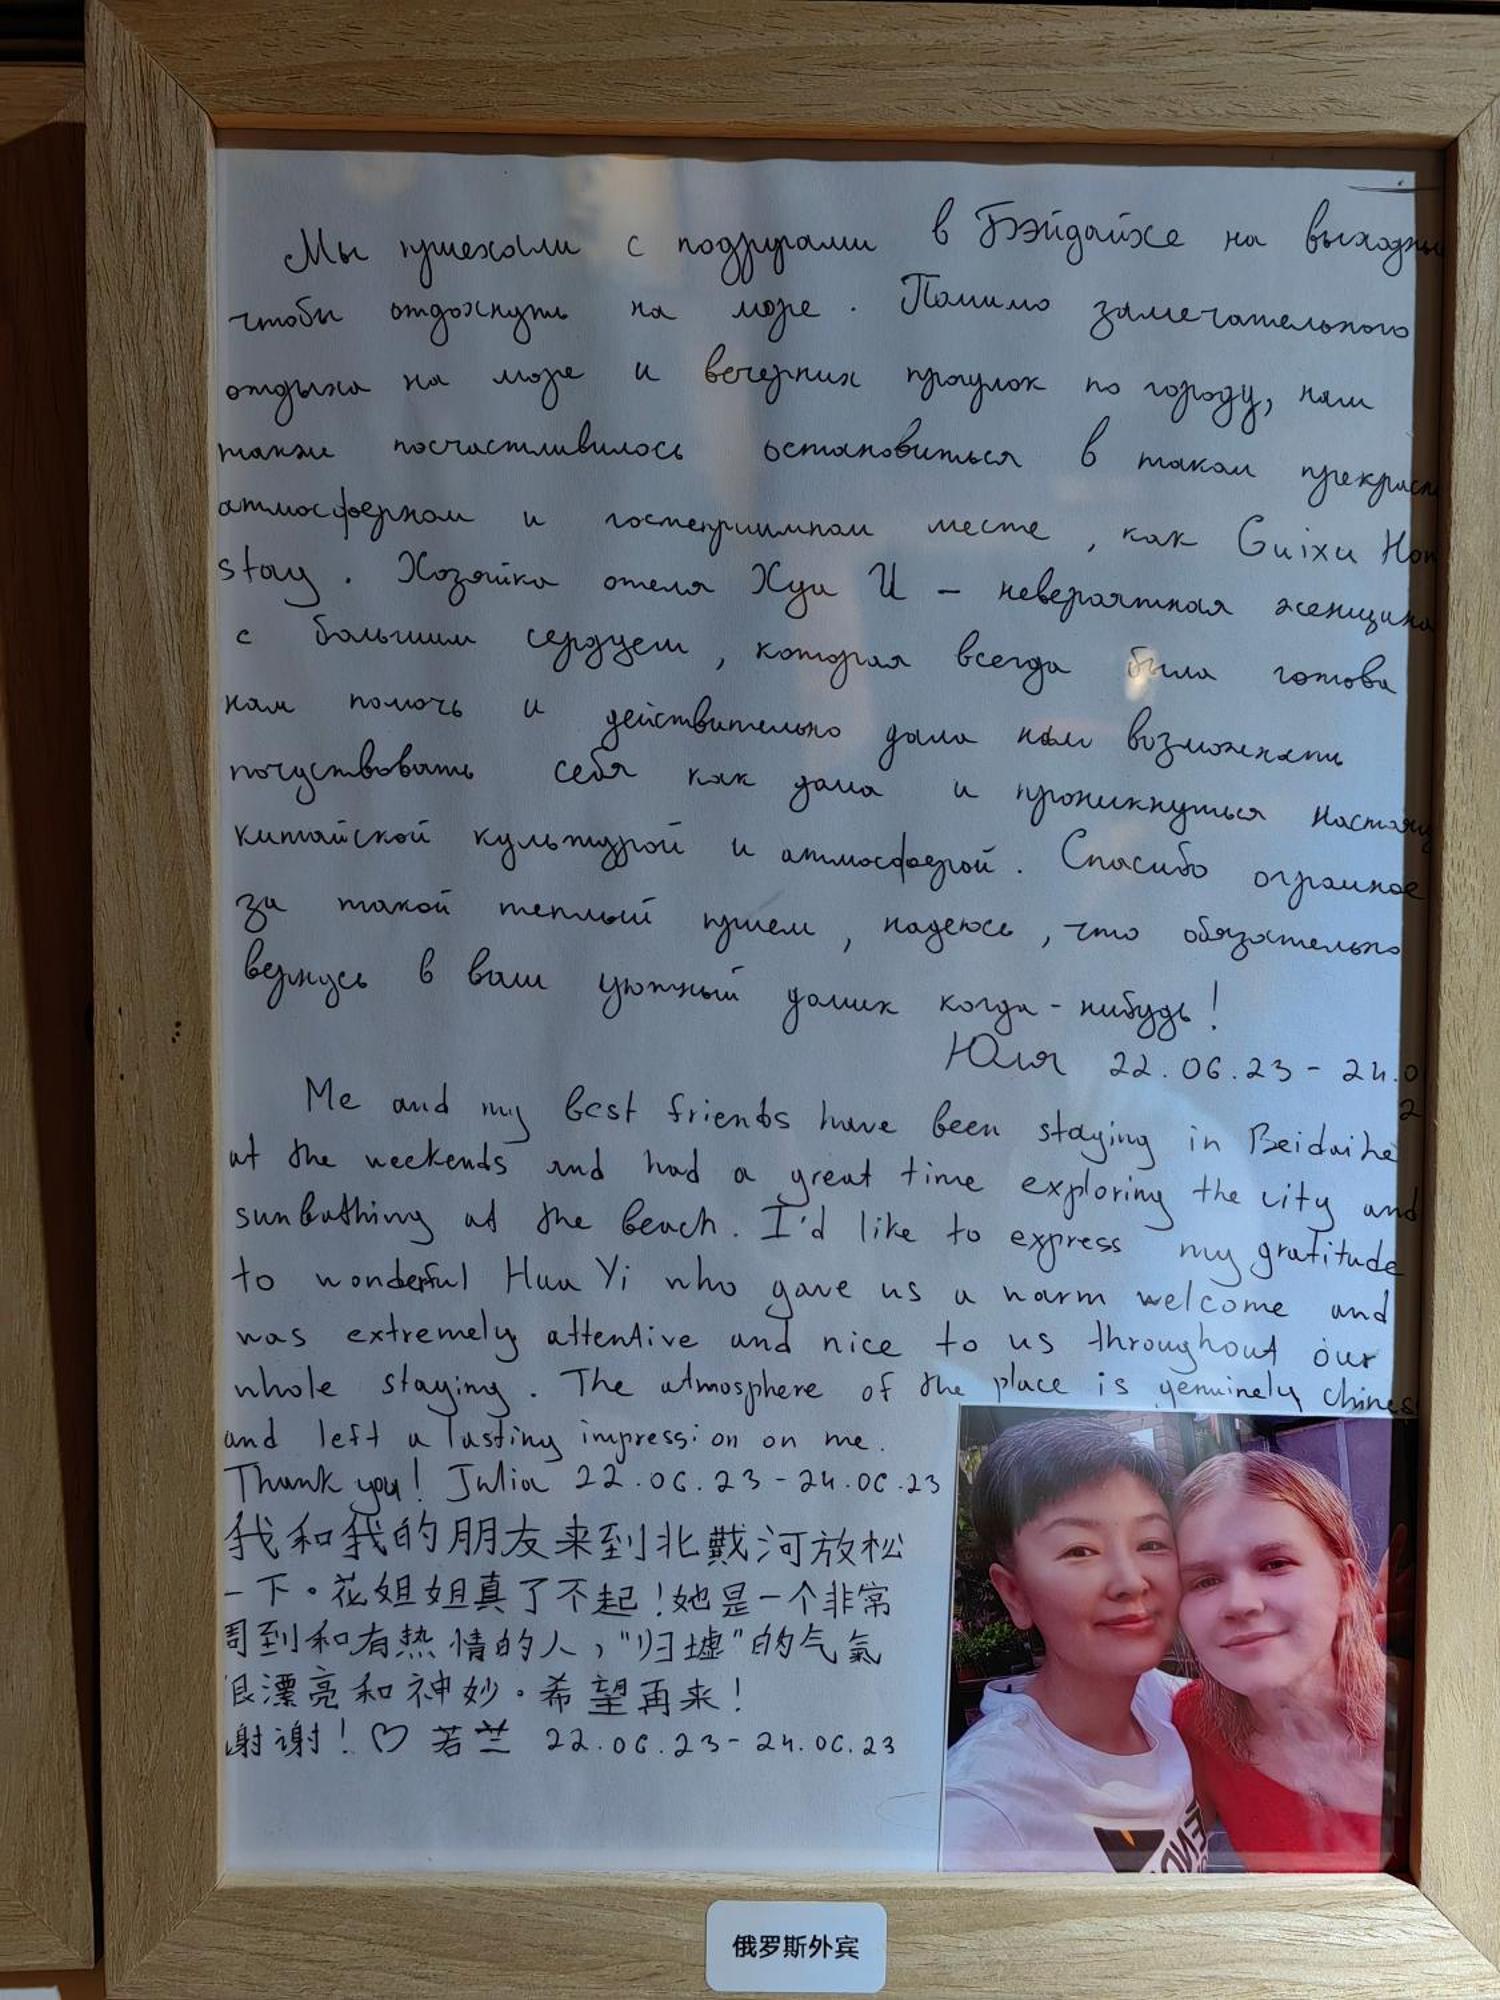 Мы приехали с подругами в Бэйдайхе на выходные
чтобы отдохнуть на море. Помимо замечательного
отдыха на море и вечерних прогулок по городу, нам
также посчастливилось остановиться в таком прекрасн
атмосферном и гостеприимном месте, как Guixu Hom
stay. Хозяйка отеля Хуа И – невероятная женщина
с большим сердцем, которая всегда была готова
нам помочь и действительно дала нам возможность
почуствовать себя как дома и проникнуться настоящ
китайской культурой и атмосферой. Спасибо огромное
за такой теплый прием, надеюсь, что обязательно
вернусь в ваш уютный домик когда-нибудь!
Юля 22.06.23 - 24.0
2
Me and my best friends have been staying in Beidaihe
at the weekends and had a great time exploring the city and
sunbathing at the beach. I'd like to express my gratitude
to wonderful Hua Yi who gave us a warm welcome and
was extremely attentive and nice to us throughout our
whole staying. The atmosphere of the place is genuinely chines
and left a lasting impression on me.
Thank you! Julia 22.06.23 - 24.06.23
我和我的朋友来到北戴河放松
一下。花姐姐真了不起!她是一个非常
周到和有热情的人,"归墟"的气氛
很漂亮和神妙。希望再来!
谢谢!♡ 若兰 22.06.23 - 24.06.23
俄罗斯外宾